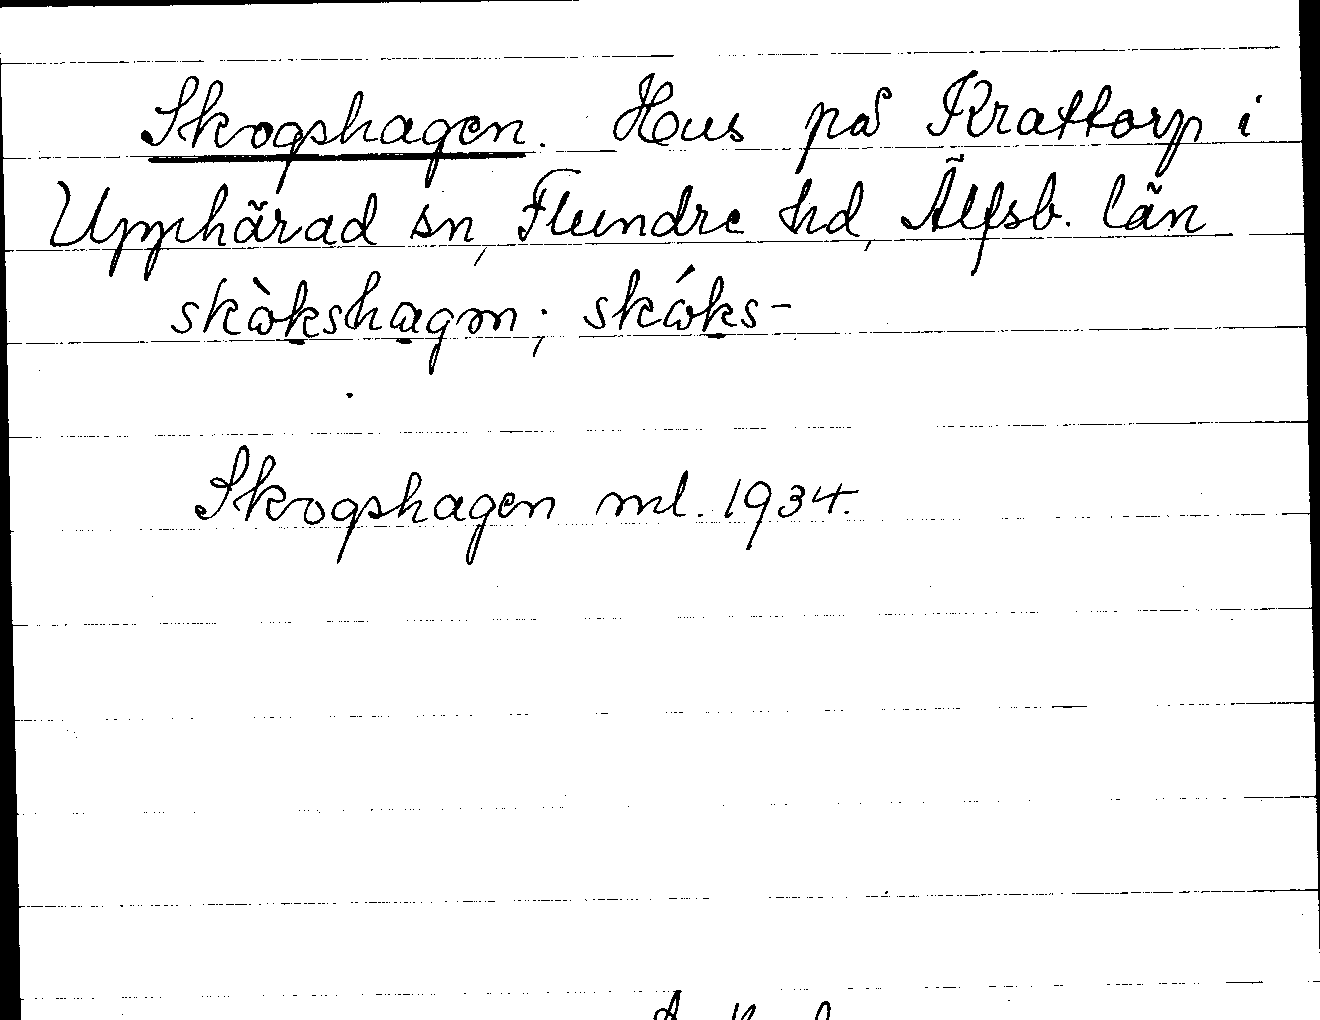 Skogshagen. Hus på Krattorp i
Upphärad sn, Flundre hd, Älfsb. län
skòkshagən; skóks-
Skogshagen ml. 1934.